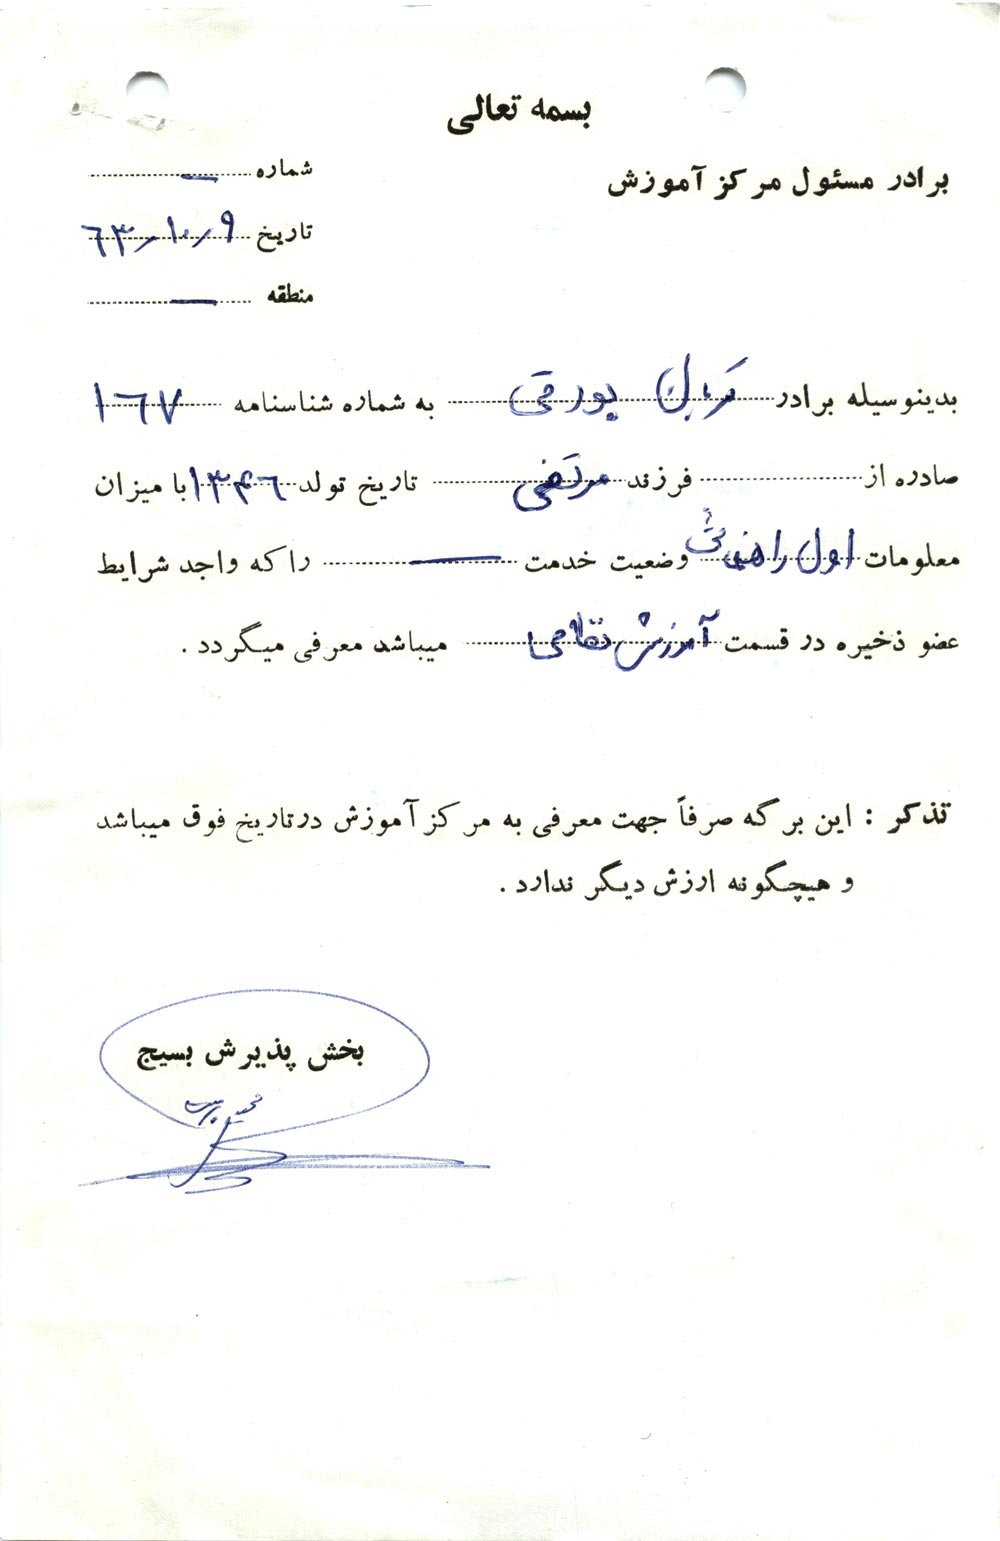 بسمه تعالی
برادر مسئول مرکز آموزش
شماره —
تاریخ ۶۳/۱۰/۹
منطقه —
بدینوسیله برادر پورقی به شماره شناسنامه ۱۶۷
صادره از فرزند مرتضی تاریخ تولد ۱۳۴۶ با میزان
معلومات اول راهنمائی وضعیت خدمت — را که واجد شرایط
عضو ذخیره در قسمت آموزش نظامی میباشد معرفی میگردد .
تذکر : این برگه صرفاً جهت معرفی به مرکز آموزش درتاریخ فوق میباشد
و هیچگونه ارزش دیگر ندارد .
بخش پذیرش بسیج